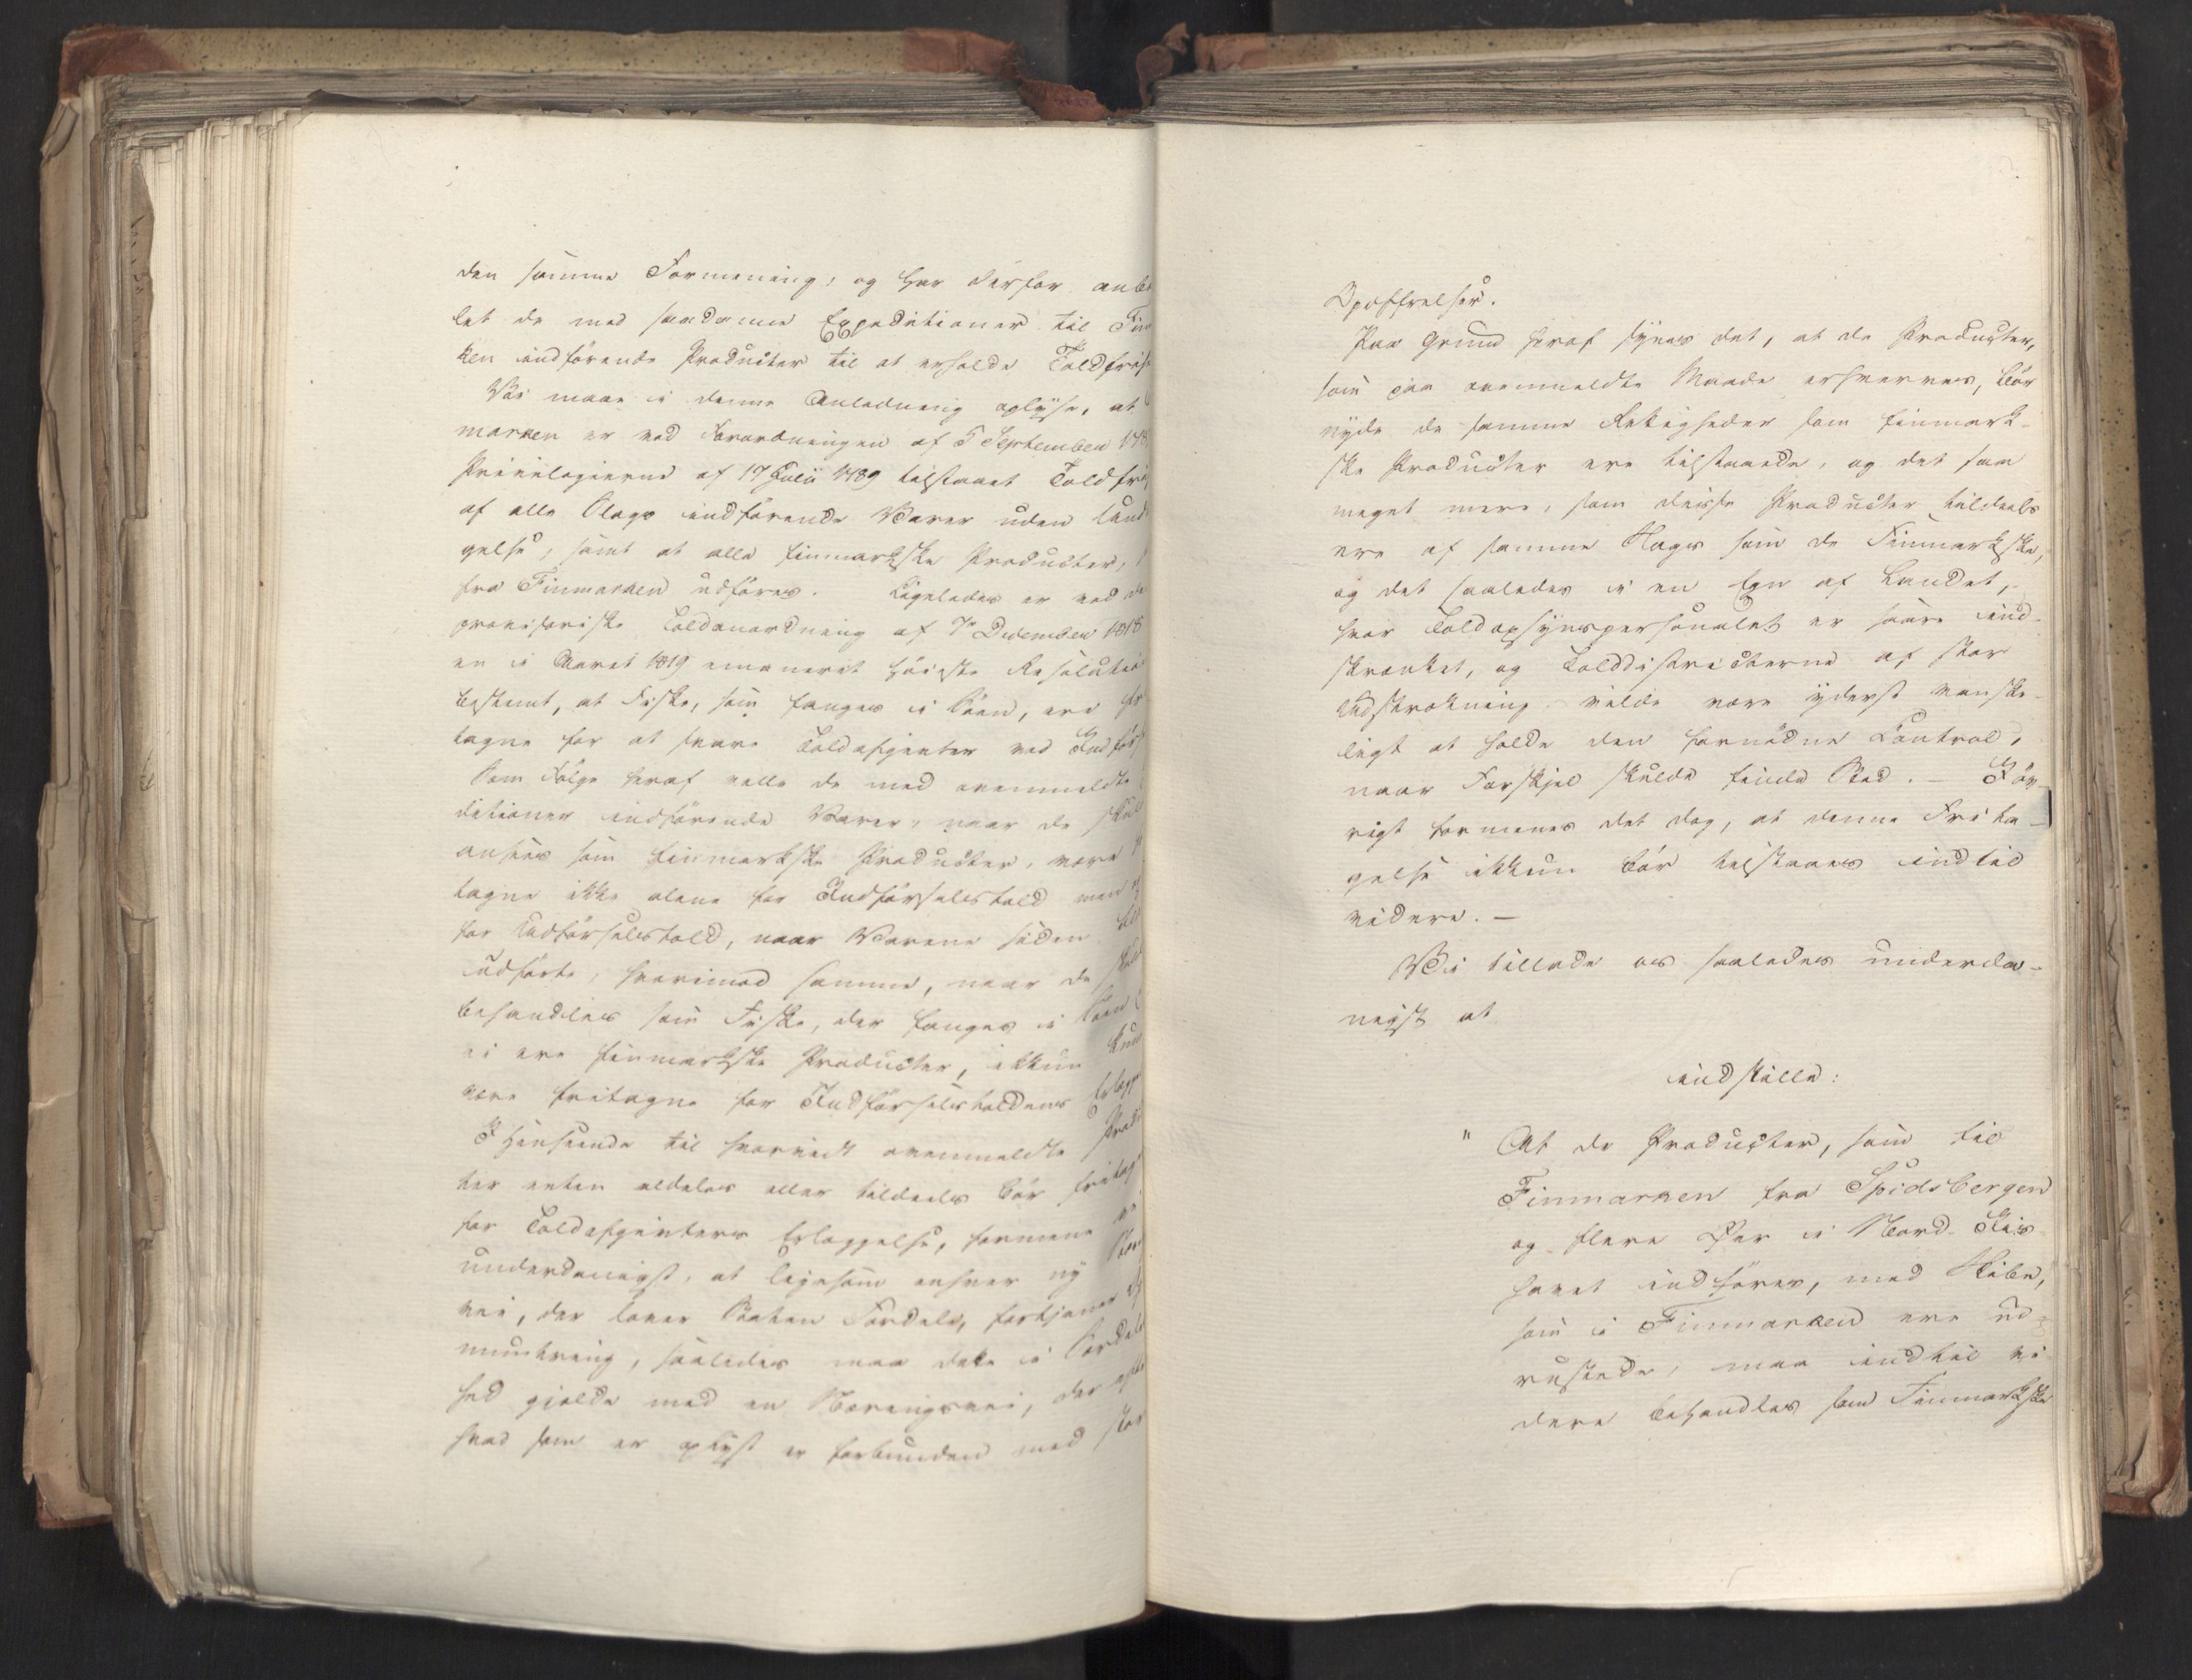 den samme Formening, og har derfor anbe
let de med saadanne Expeditioner til Fin
ken indförende Producter til at erholde Toldfrih
Vi maae i denne Anledning oplyse, at
marken er ved Forordningen af 5 September 178
Privilegierne af 17 Julii 1789 tilstaaet Toldfri
af alle Slags indförende Varer uden Und
gelse, samt at alle finmarkske Producter,
fra Finmarken udföres. Ligeledes er ved de
provisoriske Toldanordning af 7 December 1818
en i Aaret 1819 emaneret höieste Resolution
bestemt, at Fiske, som fanges i Söen, ere fri
tagne for at svare Toldafgivter ved Indförs
Som Fölge heraf ville de med ovenmeldte
ditioner indförende Varer, naar de skul
ansees som finmarkske Producter, være
tagne ikke alene for Indförselstold men og
for Udförselstold, naar Varene siden
udförte, hvorimod samme, naar de skul
behandles som Fiske, der fanges i Söen
ei ere finmarkske Producter, ikkun kun
være fritagne for Indförselstoldens Erlægge
I Henseende til hvorvidt ovenmeldte Prod
ter enten aldeles eller tildeels bör fritag
for Toldafgivters Erlæggelse, formene vi
underdanigst, at ligesom enhver ny
vei, der lover Staten Fordele, fortjener
muntring, saaledes maa dette i Særdeles
hed gjelde med en Næringsvei, der
hvad som er oplyst er forbunden med stor
Opoffrelser.
Paa Grund heraf synes det, at de Producter,
som paa ovenmeldte Maade erhverves, bör
nyde de samme Rettigheder som finmark-
ske Producter ere tilstaaede, og det saa
meget mere, som disse Producter tildeels
ere af samme Slags som de Finmarkske,
og det saaledes i en Egn af Landet,
hvor Toldopsynspersonalet er saare ind-
skrænket, og Tolddistricterne af stor
Udstrækning vilde være yderst vanske-
ligt at holde den fornödne Control,
naar Forskjel skulde finde Sted. – För-
rigt formenes det dog, at denne Frita-
gelse ikkun bör tilstaaes indtil
videre. –
Vi tillade os saaledes underda-
nigst at
indstille:
" At de Producter, som til
Finmarken fra Spidsbergen
og flere Öer i Nord-Iis-
havet indföres, med Skibe,
som i Finmarken ere ud-
rustede, maa indtil vi-
dere behandles som Finmarkske